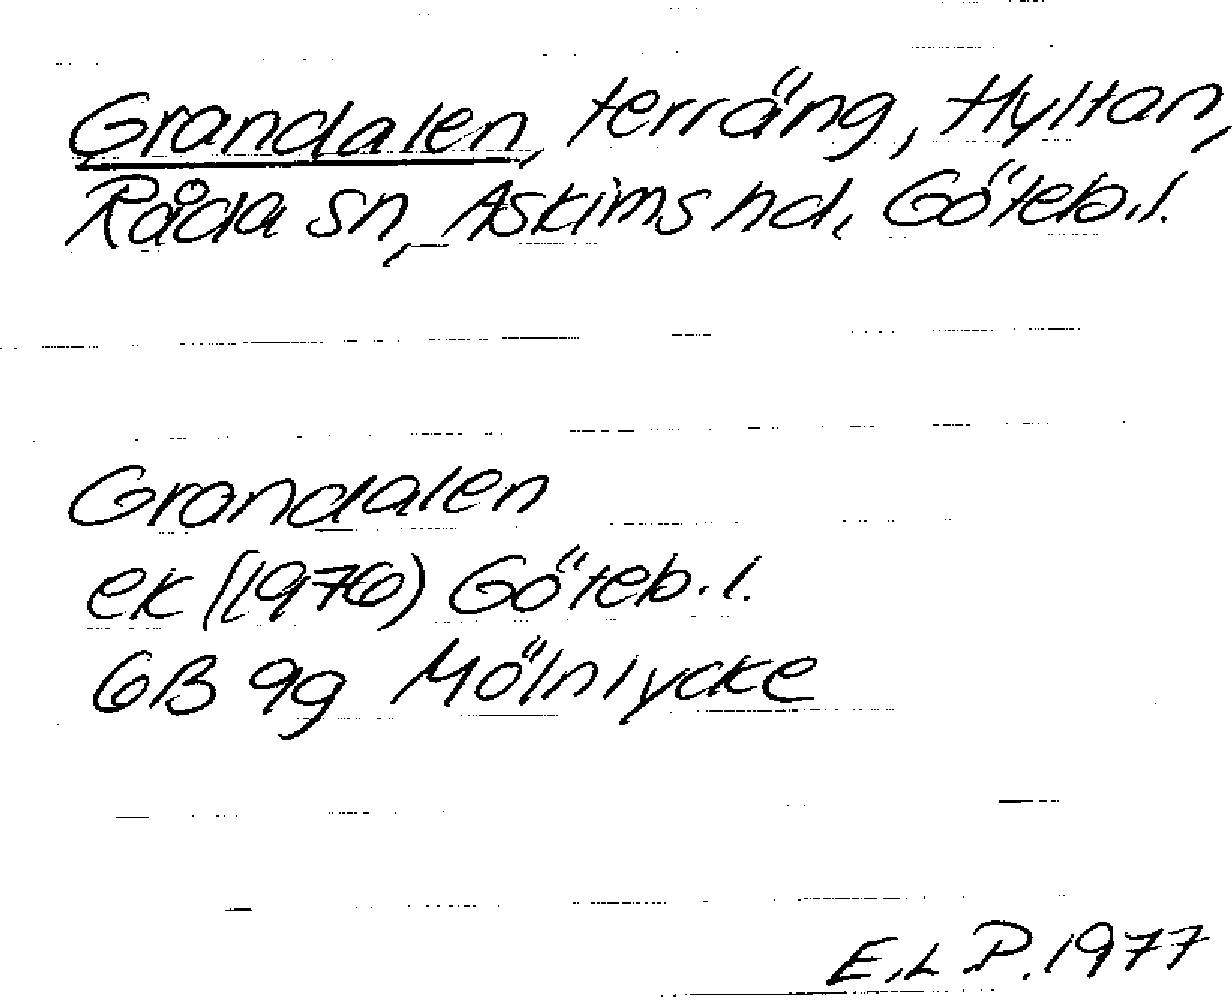 Grandalen, terräng, Hyltan,
Råda sn, Askims hd, Göteb.l.
Grandalen
ek (1976) Göteb.l.
6B 9g Mölnlycke
E.L.P. 1977